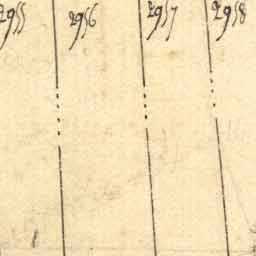 2955 2956 2957 2958